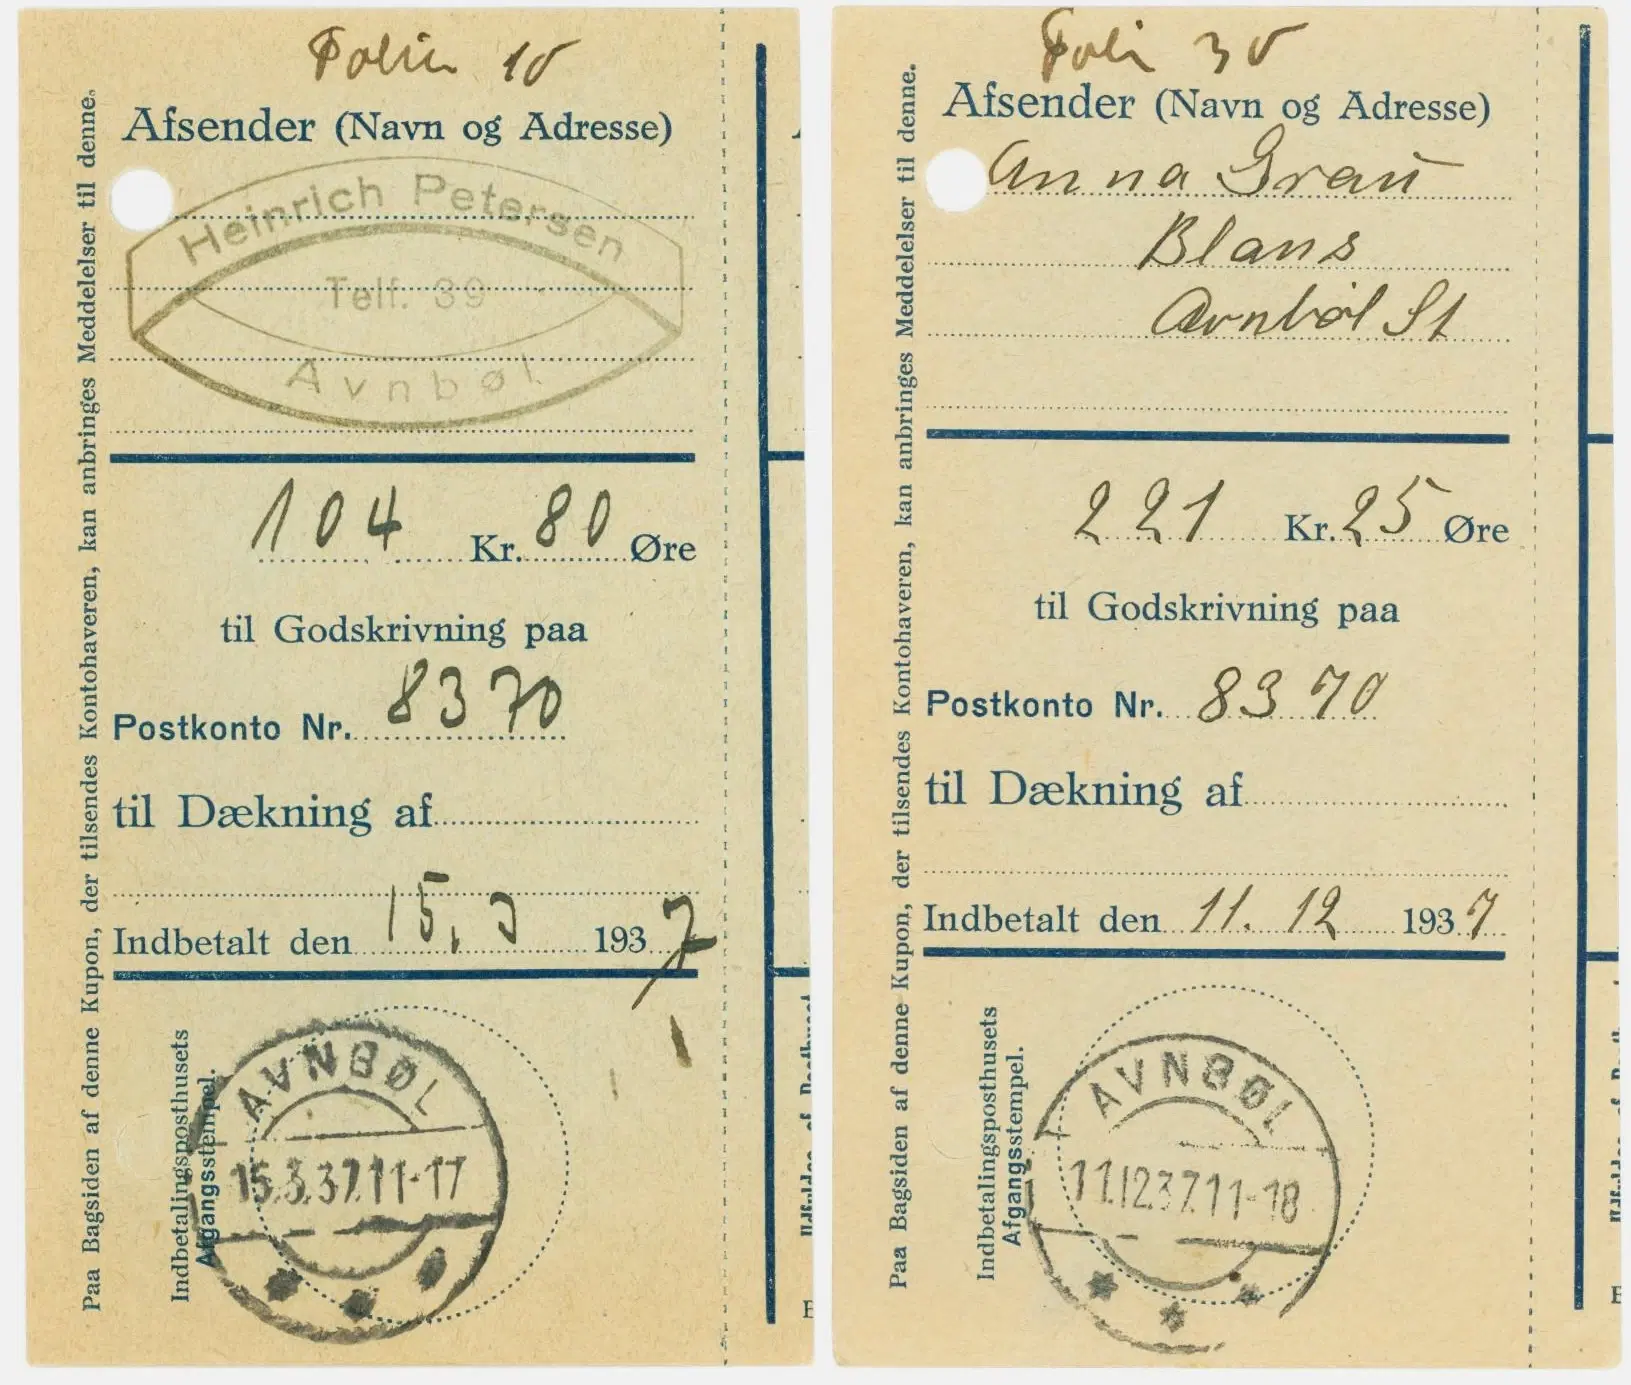 Afsender (Navn og Adresse)
Heinrich Petersen
Telf. 39
Avnbøl
104 Kr. 80 Øre
til Godskrivning paa
Postkonto Nr. 8370
til Dækning af
Indbetalt den 15. 3 1937
Indbetalingsposthusets
Afgangsstempel.
AVNBØL
15.3.37.11-17
Paa Bagsiden af denne Kupon, der tilsendes Kontohaveren, kan anbringes Meddelelser til denne.
Afsender (Navn og Adresse)
Anna Grau
Blans
Avnbøl St
221 Kr. 25 Øre
til Godskrivning paa
Postkonto Nr. 8370
til Dækning af
Indbetalt den 11. 12 1937
Indbetalingsposthusets
Afgangsstempel.
AVNBØL
11.12.37.11-18
Paa Bagsiden af denne Kupon, der tilsendes Kontohaveren, kan anbringes Meddelelser til denne.